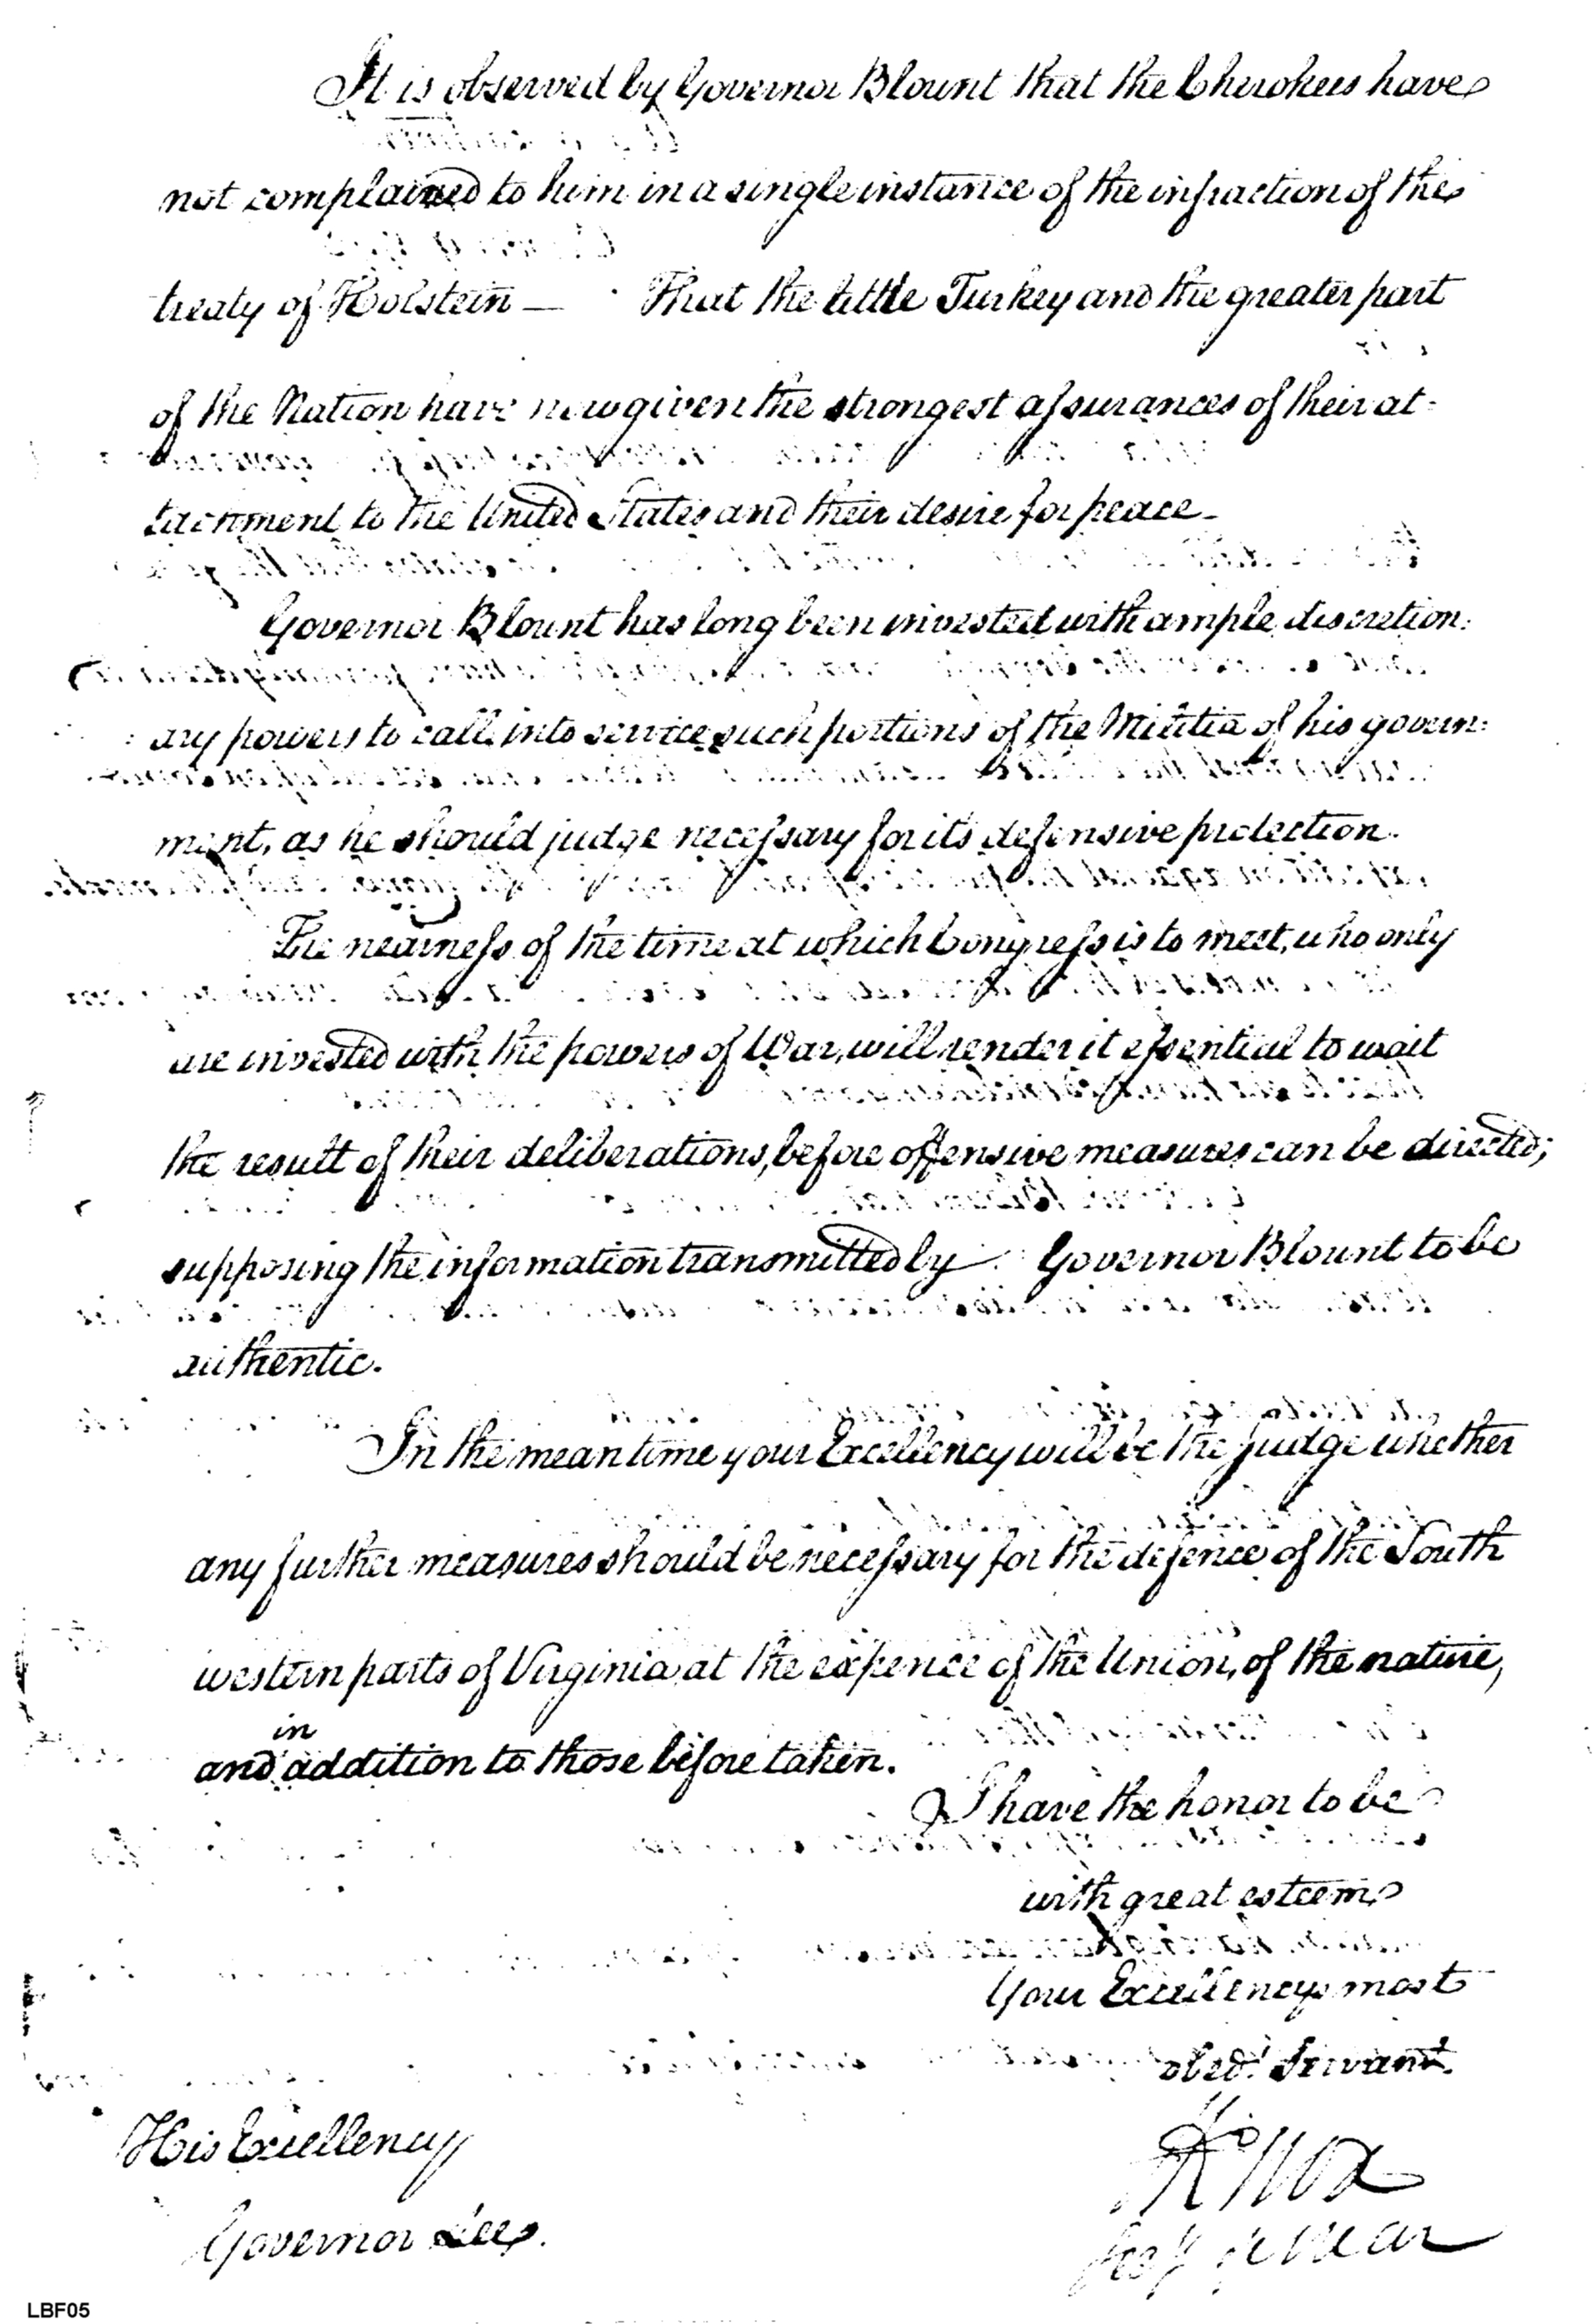 It is observed by Governor Blount that the Cherokees have
not complained to him in a single instance of the infraction of the
treaty of Holstein — That the little Turkey and the greater part
of the Nation have now given the strongest assurances of their at-
tachment to the United States and their desire for peace—
Governor Blount has long been invested with ample discretion:
:ary powers to call into service such portions of the Militia of his govern:
ment, as he should judge necessary for its defensive protection.
The nearness of the time at which Congress is to meet, who only
are invested with the powers of War, will render it essential to wait
the result of their deliberations, before offensive measures can be directed;
supposing the information transmitted by Governor Blount to be
authentic.
In the mean time your Excellency will be the judge whether
any further measures should be necessary for the defence of the South
western parts of Virginia at the expence of the Union, of the nature,
in
and addition to those before taken.
I have the honor to be
with great esteem
Your Excellencys most
obedt. Servant.
His Excellency
HKnox
Governor Lee.
Secy of War
LBF05